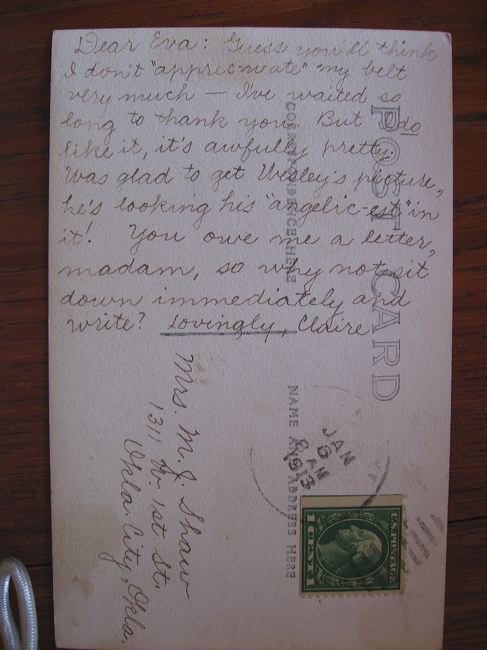 Dear Eva: Guess you'll think
I don't "apprec-i-ate" my belt
very much — I've waited so
long to thank you. But I do
like it, it's awfully pretty.
Was glad to get Wesley's picture,
he's looking his "angelic-est" in
it! You owe me a letter,
madam, so why not sit
down immediately and
write? Lovingly, Claire
POST CARD
CORRESPONDENCE HERE
NAME AND ADDRESS HERE
Mrs. M. J. Shaw
1311 W. 1st St.
Okla. City, Okla.
JAN
6
AM
1913
U.S. POSTAGE
1 CENT 1